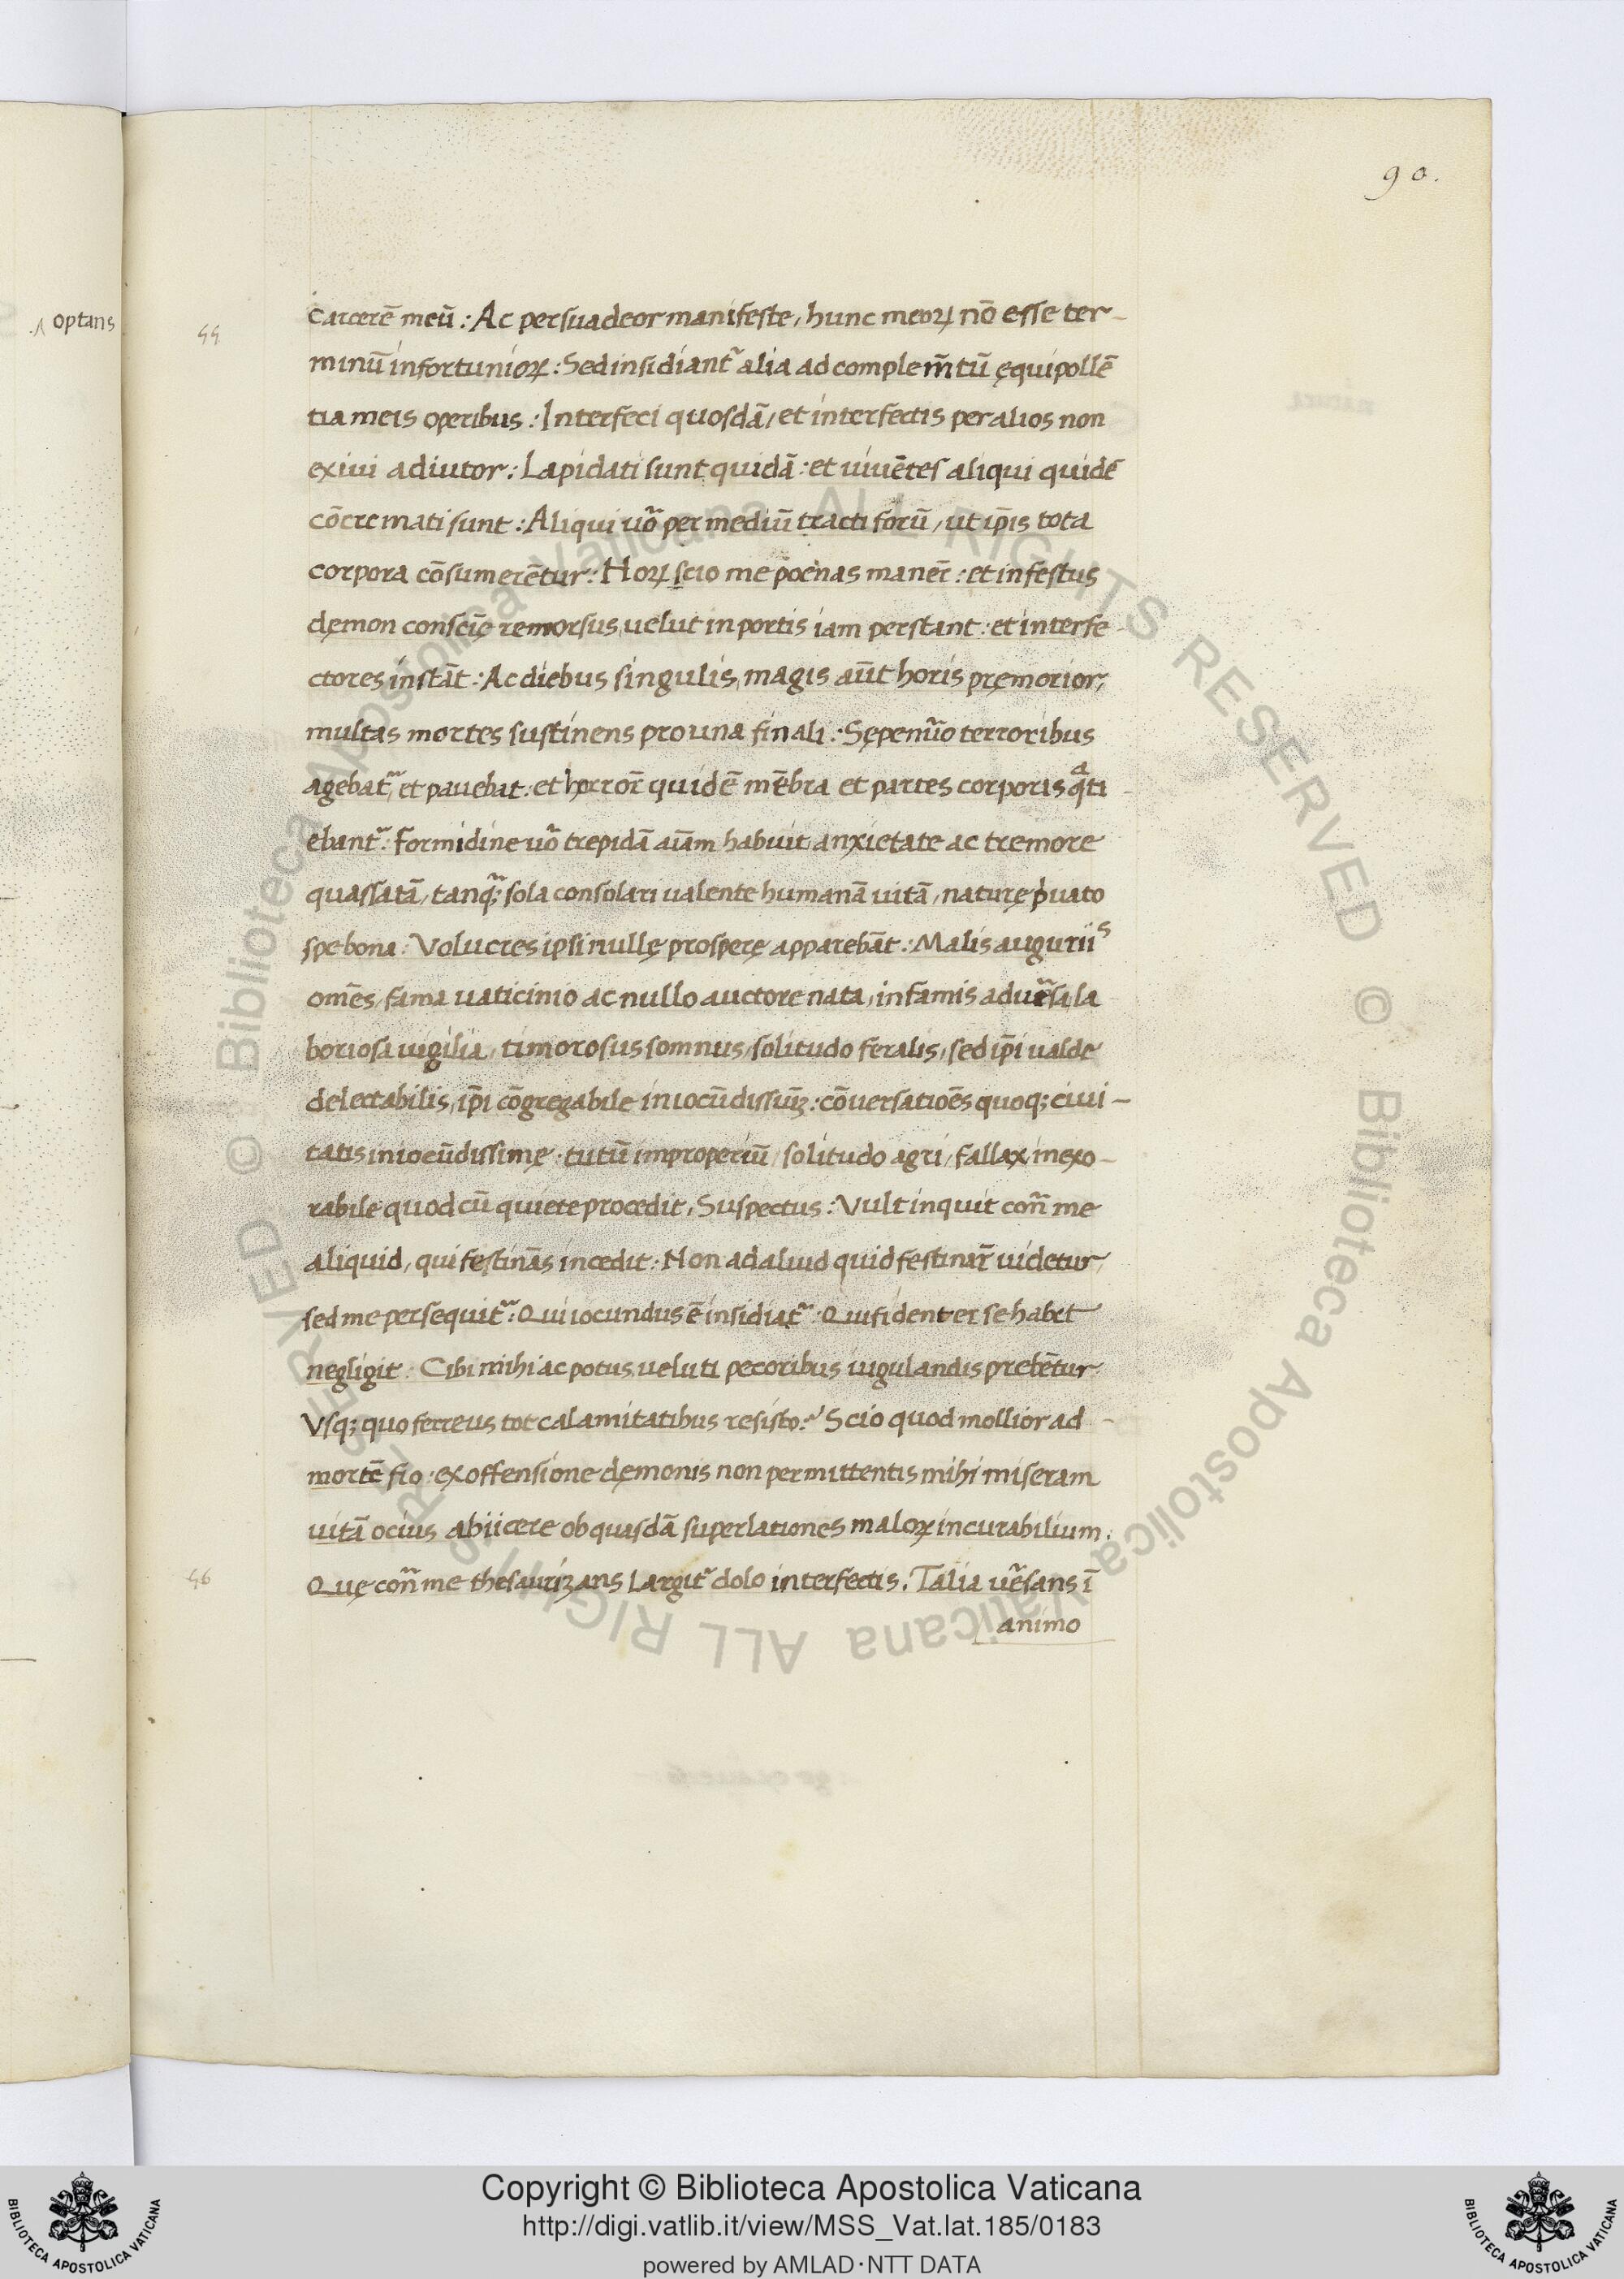 90.
optans
55
carcerē meū : Ac persuadeor manifeste, hunc meoꝝ nō esse ter-
minū infortunioꝝ : Sed insidiantᷣ alia ad complem̄tū ęquipollē
tia meis operibus : Interfeci quosdā, et interfectis per alios non
exiui adiutor : Lapidati sunt quidā : et uiuētes aliqui quidē
cōcremati sunt : Aliqui uō per mediū tracti forū, ut ip̄is tota
corpora cōsumerētur : Hoꝝ scio me poenas maner̄ : et infestus
dęmon consciē remorsus, uelut in portis iam perstant : et interfe
ctores instāt : Ac diebus singulis, magis aūt horis pręmorior,
multas mortes sustinens pro una finali : Sępenūo terroribus
agebatᷣ, et pauebat : et horror̄ quidē mēbra et partes corporis q̄ti-
ebantᷣ : Formidine uō trepidā aīam habuit, anxietate ac tremore
quassatā, tanq̄; sola consolari ualente humanā uitā, naturę p̍uato
spe bona : Volucres ipsi nullę prosperę apparebāt : Malis auguriis
omēs, fama uaticinio ac nullo auctore nata, infamis aduēsa, la
boriosa uigilia, timorosus somnus, solitudo feralis, sed ip̄i ualde
delectabilis, ip̄i cōgregabile iniocūdissuꝫ : cōuersatiōes quoq; ciui-
tatis iniocūdissimę · tutū improperiū, solitudo agri, fallax inexo-
rabile quod cū quiete procedit, Suspectus : Vult inquit con̄ me
aliquid, qui festinās incedit : Non ad aliud quid festinar̄ uidetur,
sed me persequitᷣ : Qui iocundus ē insidiatᷣ : Qui fidenter se habet
negligit : Cibi mihi ac potus, ueluti pecoribus iugulandis prebētur
Vsq; quo ferreus tot calamitatibus resisto? Scio quod mollior ad -
mortē fio : ex offensione dęmonis non permittentis mihi miseram
uitā ocius abiicere ob quasdā superlationes maloꝝ incurabilium.
56
Quę con̄ me thesaurizans largitᷣ dolo interfectis. Talia uēsans ī
animo
Copyright © Biblioteca Apostolica Vaticana
http://digi.vatlib.it/view/MSS_Vat.lat.185/0183
powered by AMLAD·NTT DATA
BIBLIOTECA APOSTOLICA VATICANA
BIBLIOTECA APOSTOLICA VATICANA
© Biblioteca Apostolica Vaticana ALL RIGHTS RESERVED © Biblioteca Apostolica Vaticana ALL RIGHTS RESERVED